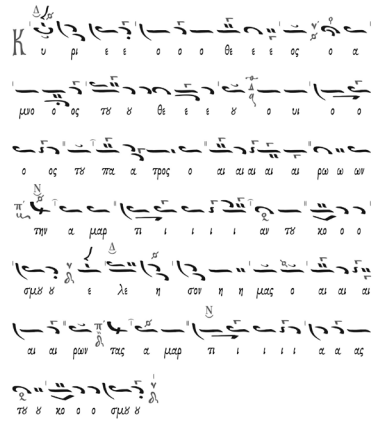 Κ υ ρι ε ε ο ο ο θε ε ε ος ο α
μνο ο ος του ου θε ε ε ου ο υι ο ο
ο ος του πα α τρος ο αι αι αι αι ρω ω ων
την α μαρ τι ι ι ι ι αν του κο ο ο
σμου ου ε λε η σον η η μας ο αι αι αι
αι αι ρων τας α μαρ τι ι ι ι ι α α ας
του ου κο ο ο σμου ου